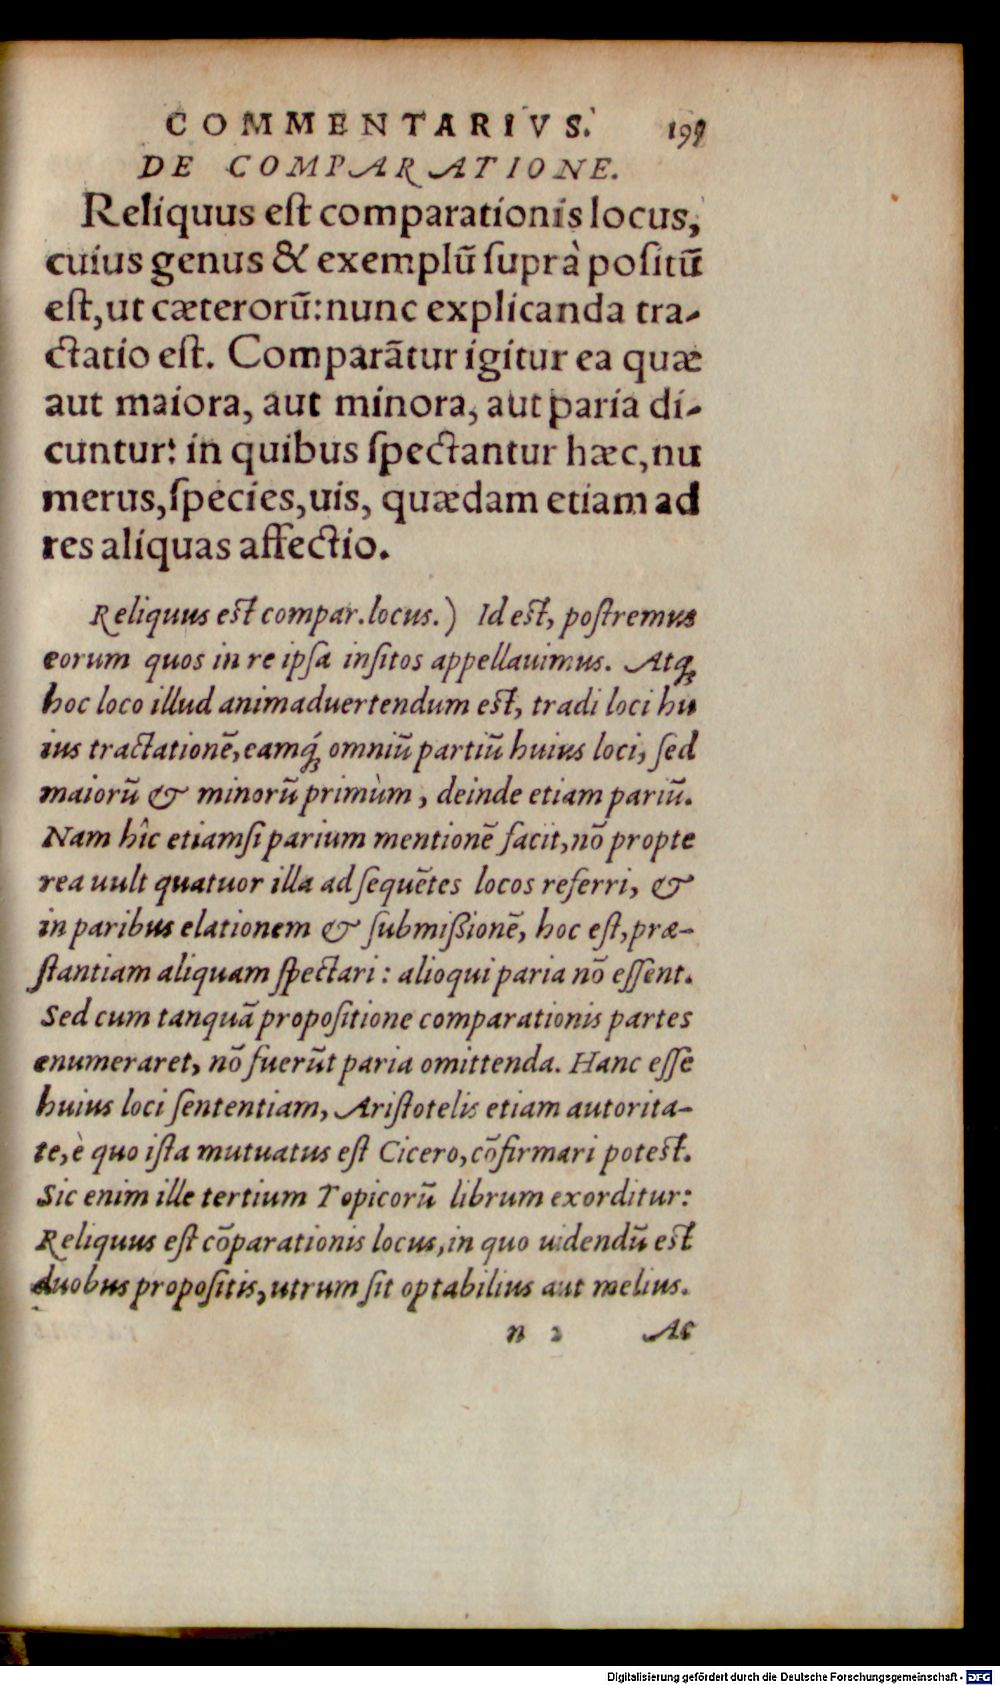 COMMENTARIVS. 199
DE COMPARATIONE.
Reliquus eſt comparationis locus,
cuius genus & exemplū ſuprà poſitū
eſt, ut cæterorū: nunc explicanda tra-
ctatio eſt. Comparātur igitur ea quæ
aut maiora, aut minora, aut paria di-
cuntur: in quibus ſpectantur hæc, nu
merus, ſpecies, uis, quædam etiam ad
res aliquas affectio.
Reliquus eſt compar. locus.) Id eſt, poſtremus
eorum quos in re ipſa inſitos appellauimus. Atq;
hoc loco illud animaduertendum eſt, tradi loci hu
ius tractationē, eamq́; omniū partiū huius loci, ſed
maiorū & minorū primùm, deinde etiam pariū.
Nam hîc etiamſi parium mentionē facit, nō propte
rea uult quatuor illa ad ſequētes locos referri, &
in paribus elationem & ſubmiſſionē, hoc eſt, præ-
ſtantiam aliquam ſpectari: alioqui paria nō eſſent.
Sed cum tanquā propoſitione comparationis partes
enumeraret, nō fuerūt paria omittenda. Hanc eſſe
huius loci ſententiam, Ariſtotelis etiam autorita-
te, è quo iſta mutuatus eſt Cicero, cōfirmari poteſt.
Sic enim ille tertium Topicorū librum exorditur:
Reliquus eſt cōparationis locus, in quo uidendū eſt
duobus propoſitis, utrum ſit optabilius aut melius.
n 2 Ac
Digitalisierung gefördert durch die Deutsche Forschungsgemeinschaft - DFG